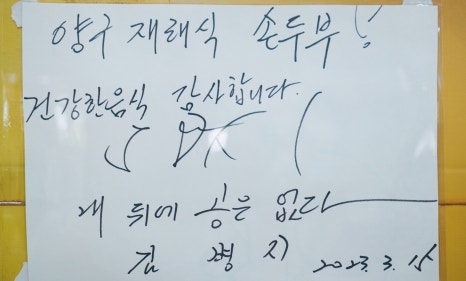 양구 재래식 손두부!
건강한음식 감사합니다.
내 뒤에 공은 없다
김 병 지 2023.3.15